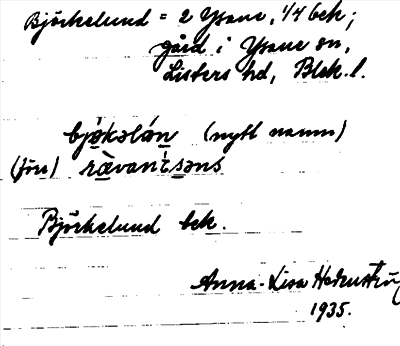 Björkelund = 2 Ysane, 1/4 bek;
gård i Ysane sn,
Listers hd, Blek. l.
bjǫ́kəlán (nytt namn)
(förr) rǻvantsəns
Björkelund bek.
Anna-Lisa
1935.